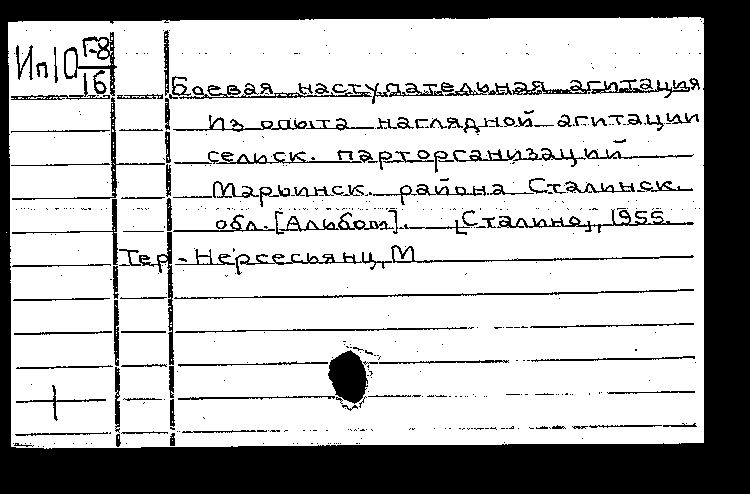 Ип10 Г-8
16
Боевая наступательная агитация
Из опыта наглядной агитации
сельск. парторганизаций
Марьинск. района Сталинск.
обл. [Альбом]. [Сталино], 1955.
Тер-Нерсесьянц, М
1